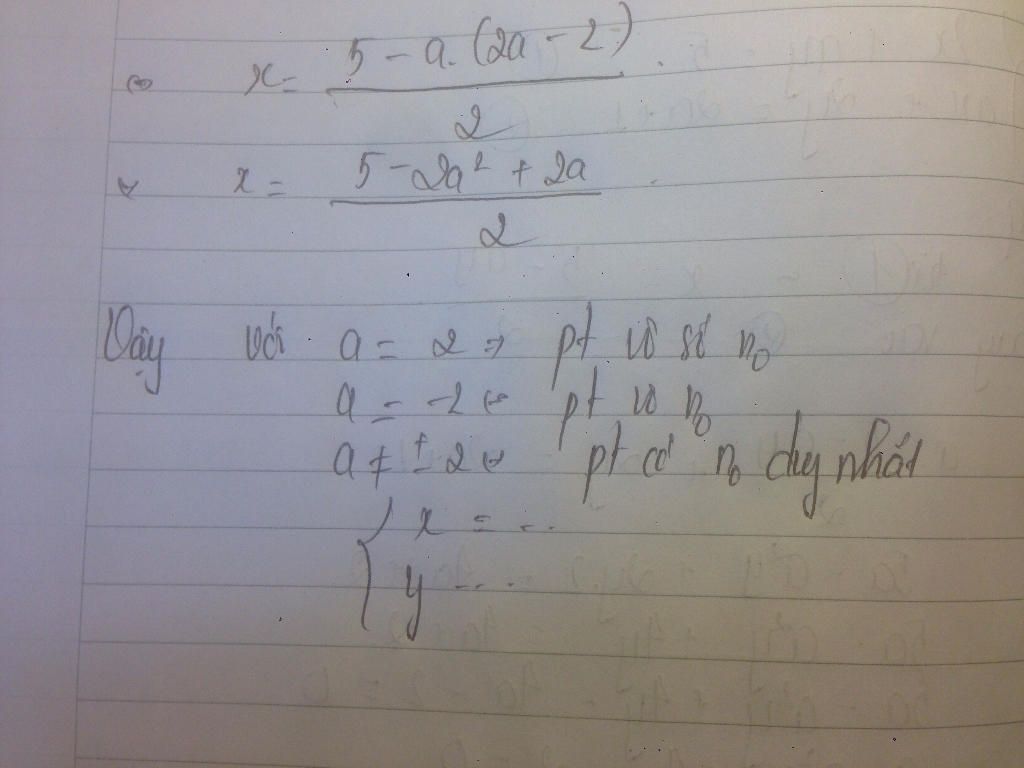 ⇔ x = \frac{5 - a.(2a - 2)}{2}.
⇔ x = \frac{5 - 2a² + 2a}{2}.
Vậy với a = 2 ⇒ pt vô số n₀
a = -2 ⇔ pt vô n₀
a ≠ ± 2 ⇔ pt có n₀ duy nhất
{ x = ...
y ...